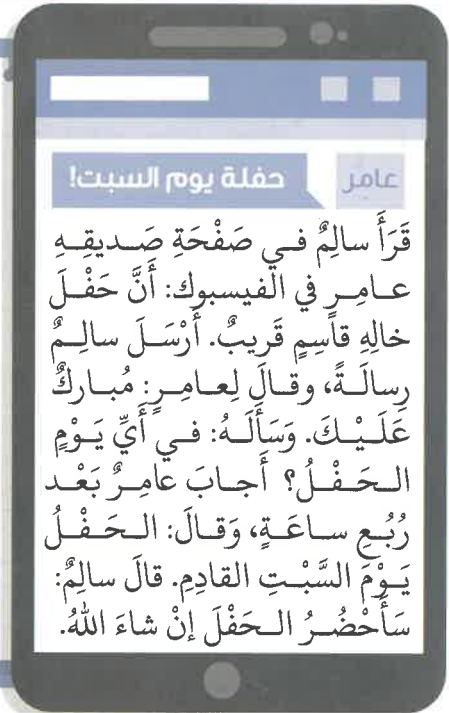 عامر
حفلة يوم السبت!
قَرَأَ سالِمٌ فـي صَفْحَةِ صَـديقِـهِ
عـامِـرٍ في الفيسبوك: أَنَّ حَفْـلَ
خالِهِ قاسِمٍ قَريبٌ. أَرْسَـلَ سالِـمٌ
رِسالَـةً، وقـالَ لِعـامِـرٍ: مُبارَكٌ
عَلَـيْـكَ. وَسَأَلَـهُ: فـي أَيِّ يَـوْمٍ
الـحَـفْـلُ؟ أَجـابَ عامِـرٌ بَعْـد
رُبْـعِ سـاعَـةٍ، وَقـالَ: الـحَـفْـلُ
يَـوْمَ السَّبْـتِ القادِمِ. قالَ سالِمٌ:
سَأَحْضُـرُ الـحَفْلَ إنْ شاءَ اللهُ.